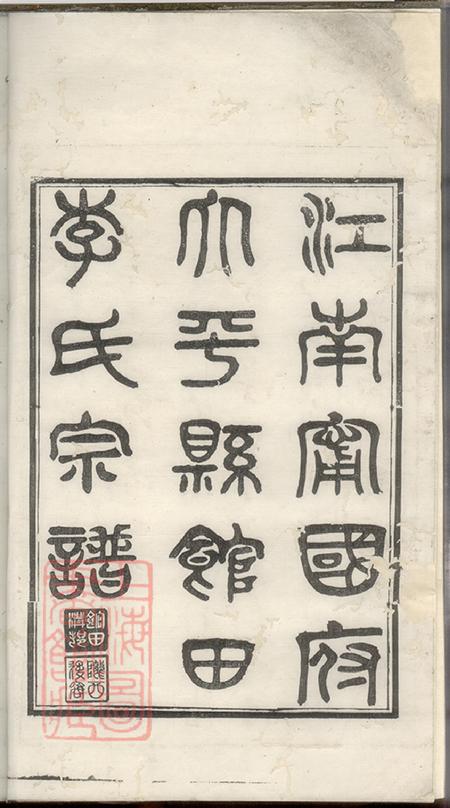 江南甯國府
太平縣館田
李氏宗譜
館田
隴西
上海圖